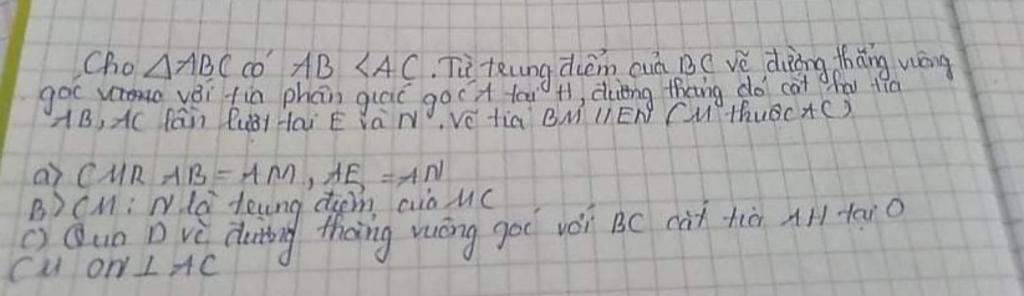 Cho △ABC có AB < AC. Từ trung điểm của BC vẽ đường thẳng vuông
góc với tia phân giác góc A tại H, đường thẳng đó cắt hai tia
AB, AC lần lượt tại E và N. Vẽ tia BM // EN (M thuộc AC)
a) CMR AB = AM, AE = AN
B) CM: N là trung điểm của MC
c) Qua D vẽ đường thẳng vuông góc với BC cắt tia AH tại O
CM ON ⊥ AC